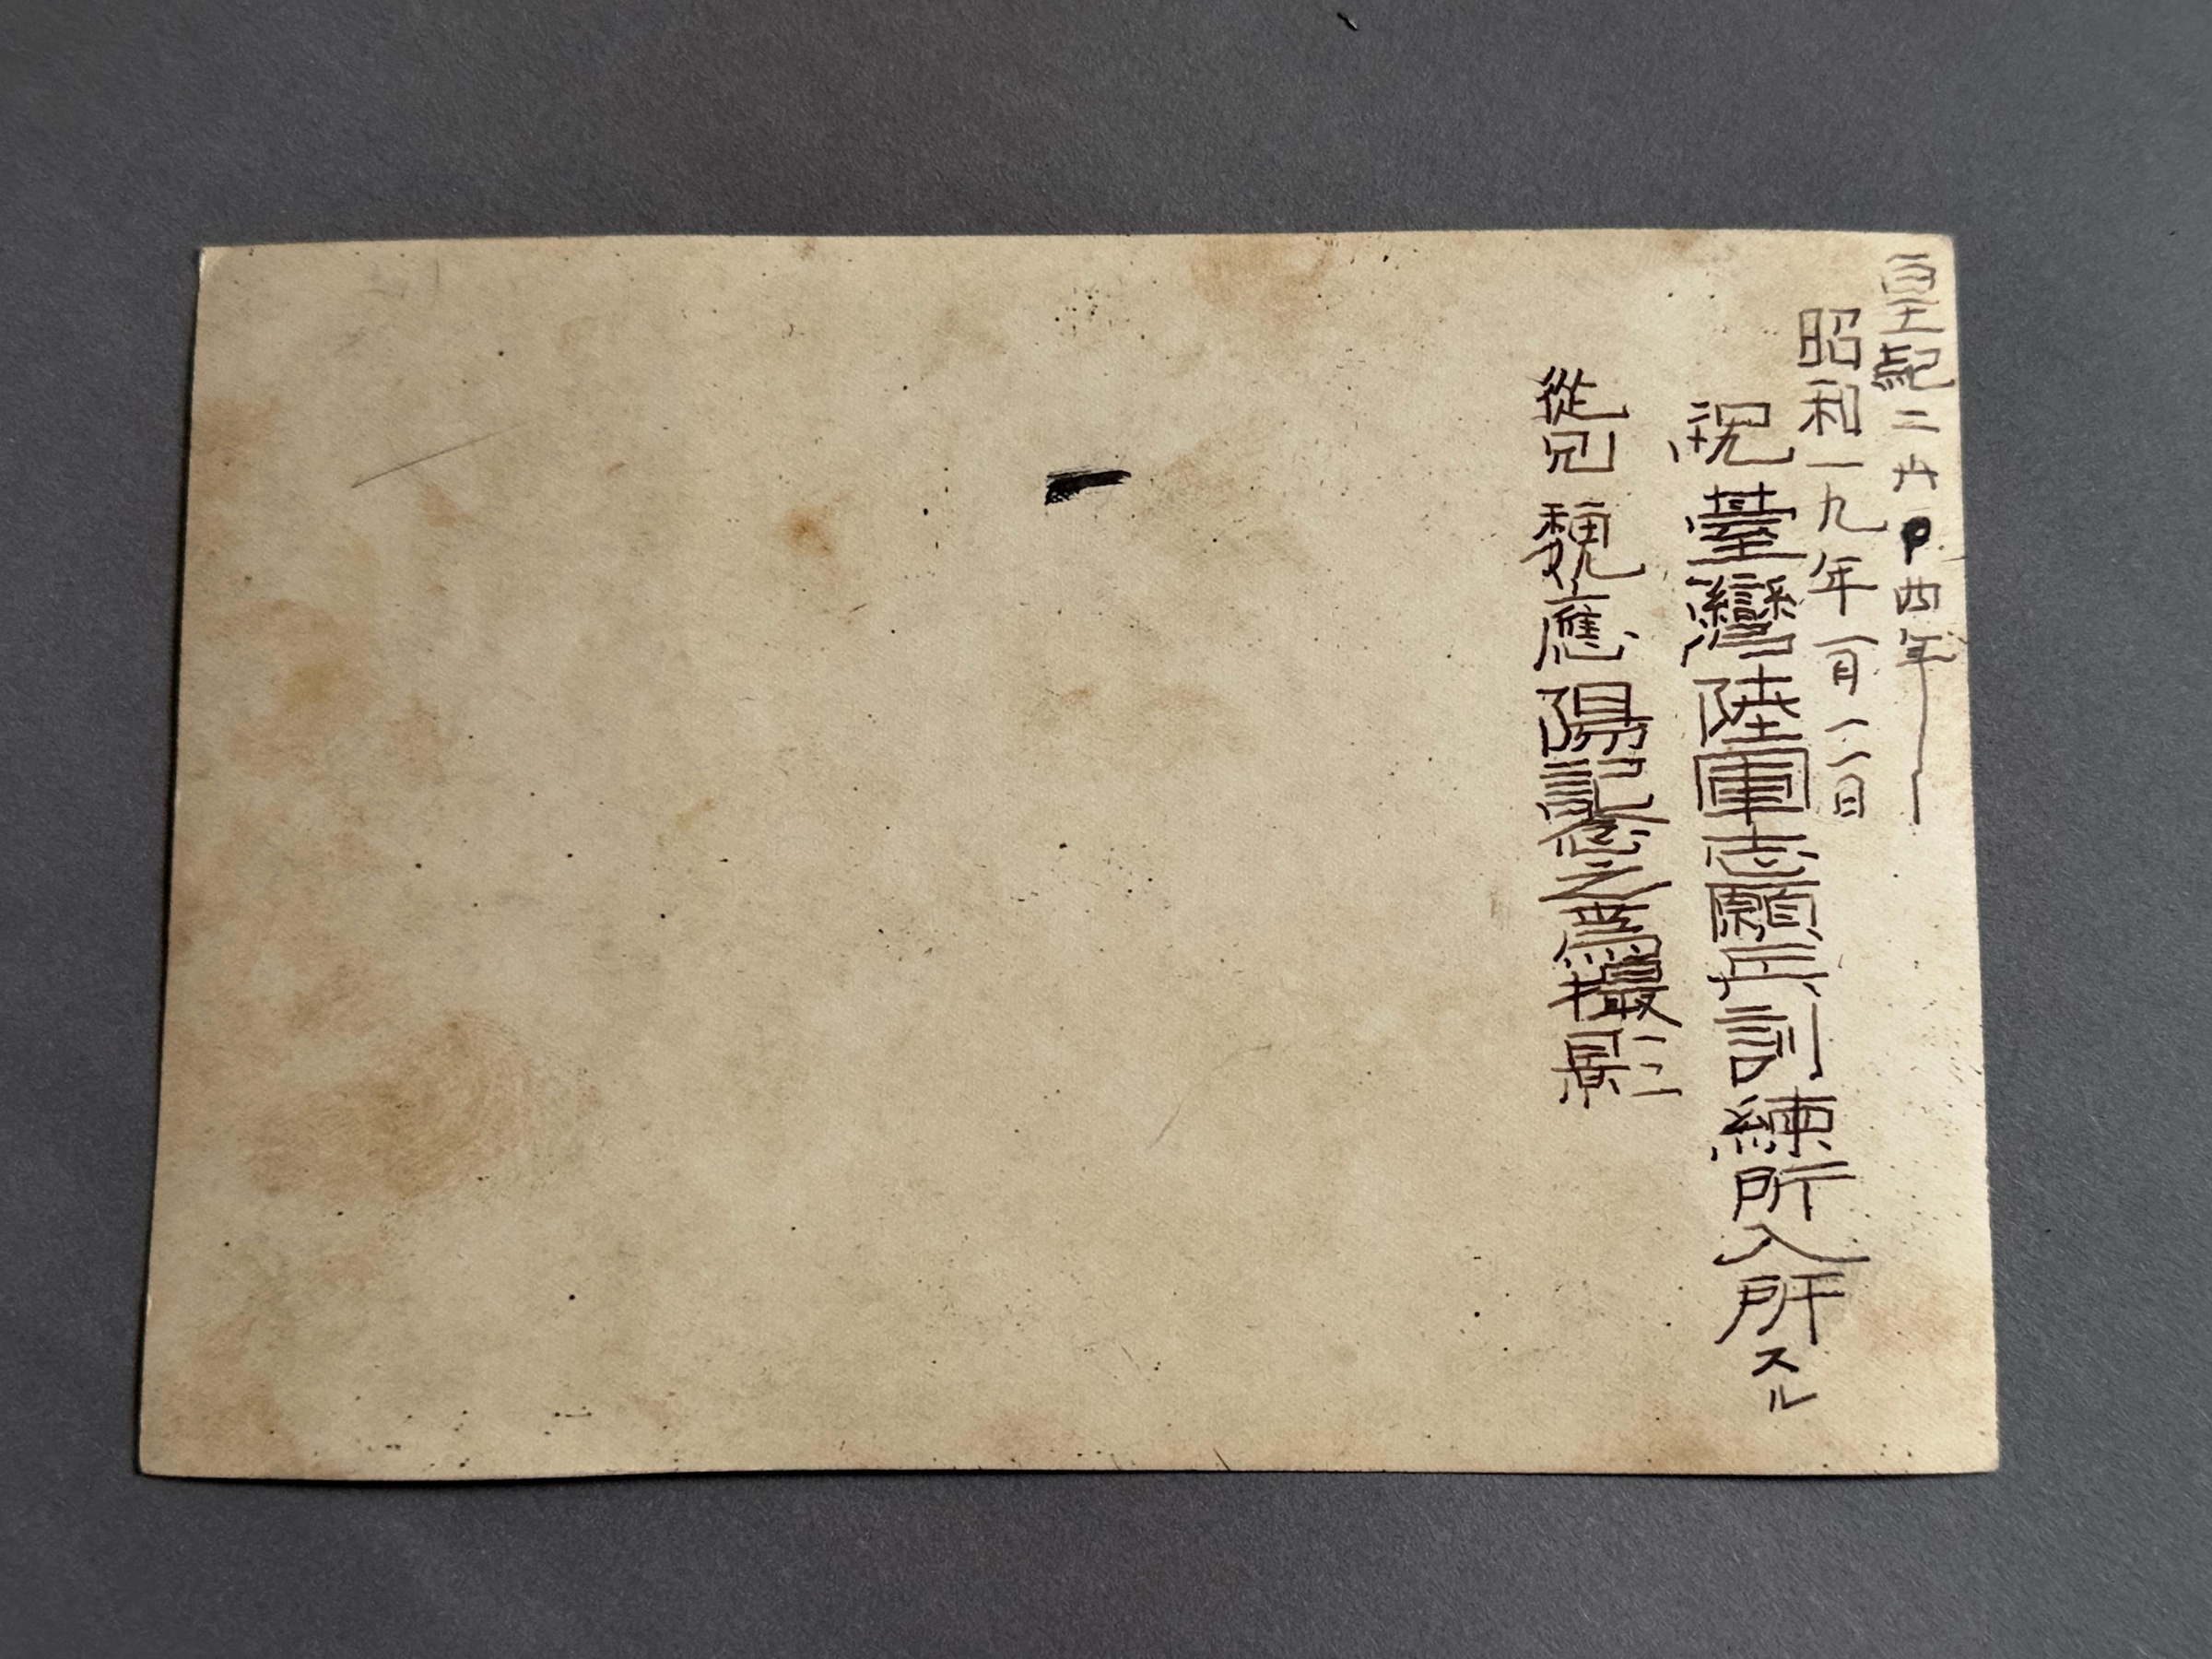 皇紀二六〇四年
昭和一九年一月一二日
祝臺灣陸軍志願兵訓練所入所スル
從兄魏應陽記念之為撮影